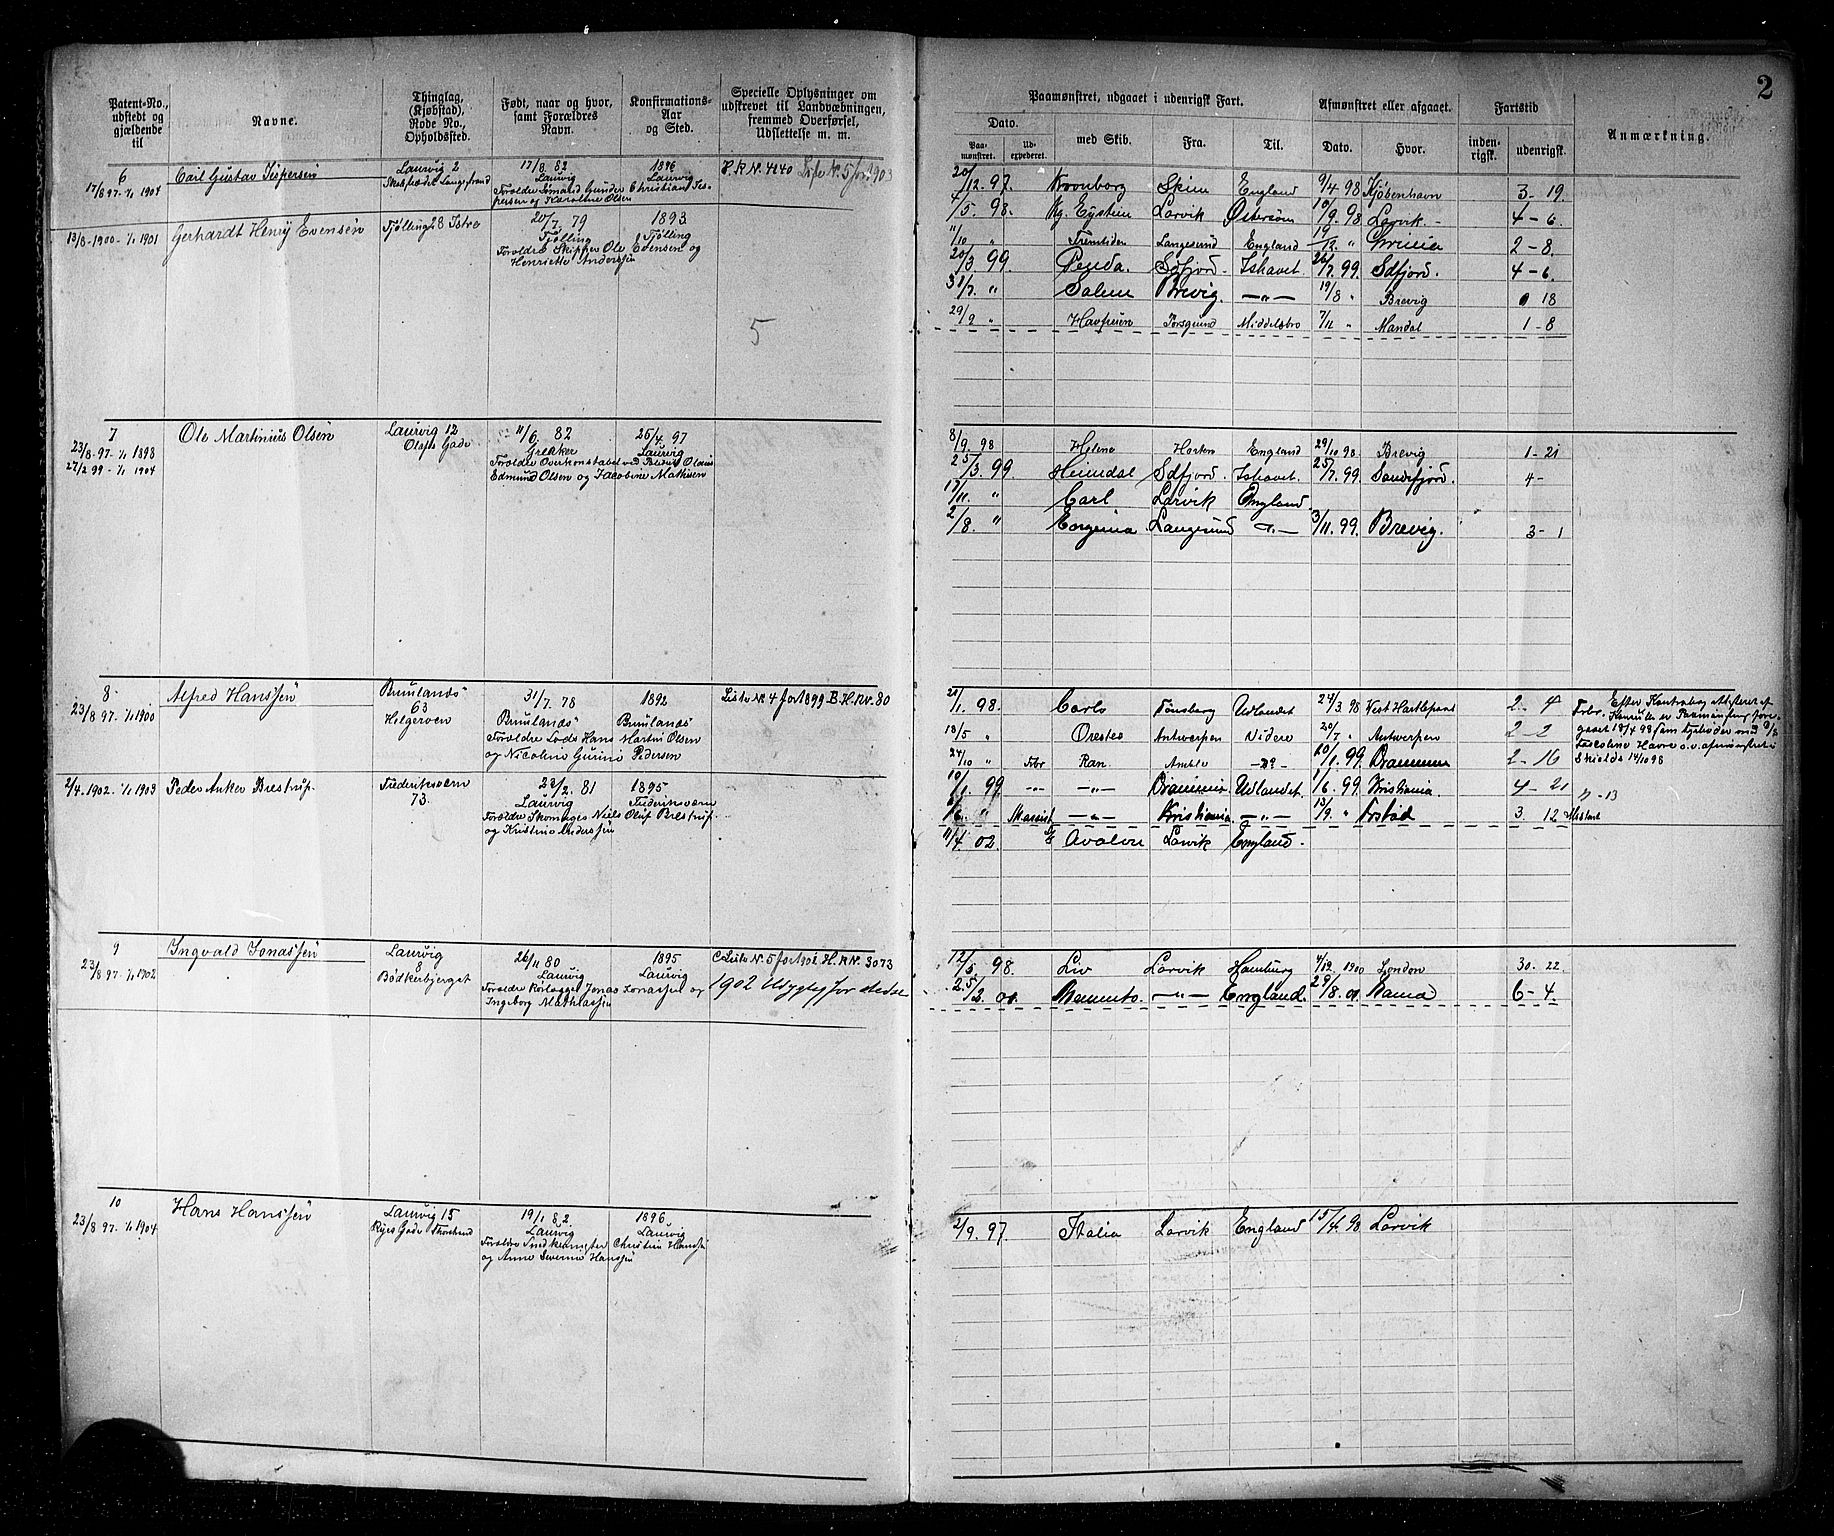 2
Patent-No., udstedt og gjældende til
Navne.
Thinglag, (Kjøbstad), Rode No., Opholdssted.
Født, naar og hvor, samt Forældres Navn.
Konfirmations-Aar og Sted.
Specielle Oplysninger om udskrevet til Landværbningen, fremmed Overførsel, Udslettelse m. m.
Paamønstret, udgaaet i udenrigsk Fart.
Dato.
Paa-mønstret.
Ud-expederet.
med Skib.
Fra.
Til.
Afmønstret eller afgaaet.
Dato.
Hvor.
Fartstid
inden-rigsk.
udenrigsk.
Anmærkning.
6
17/8 97 - 1/1 1904
Carl Gustav Jespersen
Laurvig 2
17/8 82
Laurvig
1896
Laurvig
H.R.N. 4140 Liste N. 5 for 1903
13/8 - 1900 - 1/1 1901
Gerhardt Henry Evensen
Tjølling 28 Istre
20/7 79
Tjølling
Forældre Skipper Ole Evensen og
Henriette Anderssen
1893
Tjølling
5
20/12. 97. Kronborg Skien England 9/4 98 Kjøbenhavn 3 - 19.
4/5. 98. Kg. Eystein Larvik Østersøen 10/9. 98 Larvik - 4 - 6.
11/10 " Fremtiden Langesund England 19/12 " 2 - 8.
20/3. 99. Sdfjord. Ishavet. 26/7. 99. Sdfjord. 4 - 6.
31/7. " Salem Brevig. - " - 19/8 " Brevig 18
29/9 " Porsgrund Middelsbro 7/11 " Mandal 1 - 8
7
23/8 - 97 - 1/1 1898
27/2 99 - 1/1 1904
Ole Martinius Olsen
Laurvig 12
Olafs Gade
11/6. 82
Greaker
Forældre Overkonstabel ved Politiet Olaus
Edmund Olsen og Jacobine Mathisen
25/4. 97
Laurvig
8/9. 98 Helene Horten England 29/10 98. Brevig 1 - 21
25/3. 99. Heimdal Sdfjord. Ishavet. 25/7. 99. Sandefjord. 4 -
17/11. " Carl Larvik England.
2/8. " Eugenia Langesund - " - 3/11. 99. Brevig. 3 - 1
8
23/8 97. 1/1 1900
Alfred Hanssen
Brunlands
63
Helgeroen
31/7. 78
Brunlands
Forældre Lods Hans Martin Olsen
og Nicoline Gurine Pedersen
1892
Brunlands
Liste N. 4 for 1899 B.H.R.Nr. 80
21/1. 98. Carlo Tønsberg Udlandet 24/3. 98 Vest Hartlepool 2 - 4
13/5 " Orestes Antwerpen Nidere 20/7 " Antwerpen 2 - 2
24/10 " Frbr Ran. Amble - " - 10/1. 99. Drammen 2 - 16
Skields 14/10 98
2/4. 1902. 1/1 1903
Peder Anker Brestrup.
Frederiksværn
73.
22/2. 81
Laurvig
Forældre Skomager Niels Oluf Brestrup
og Kristine Anderssen
1895
Frederiksværn
19/1 99 - " - Drammen. Udlandet. 1/6. 99. Kristiania. 4 - 21
11 - 13
/6. " - " - Kristiania. - " - 13/9. " 3. 12
11/4. 02. Larvik England.
9
23/8 97 - 1/1 1902
Ingvald Jonassen
Laurvig
8
Bødkerbjerget
26/11 80
Laurvig
Forældre Jonas Jonassen og
Ingeborg Mathiassen
1895
Laurvig
C Liste N. 5 for 1901 H.R.N. 3073
12/5. 98. Liv Larvik Hamburg 4/12. 1900 London 30 - 22.
25/2. 01. - " - England. 29/8. 01 6 - 4.
10
23/8 97. 1/1 1904
Hans Hanssen
Laurvig 15
19/1 82
Laurvig
og Anne Severine Hanssen
1896
Laurvig
2/9. 97. Italia Larvik England 15/4. 98 Larvik